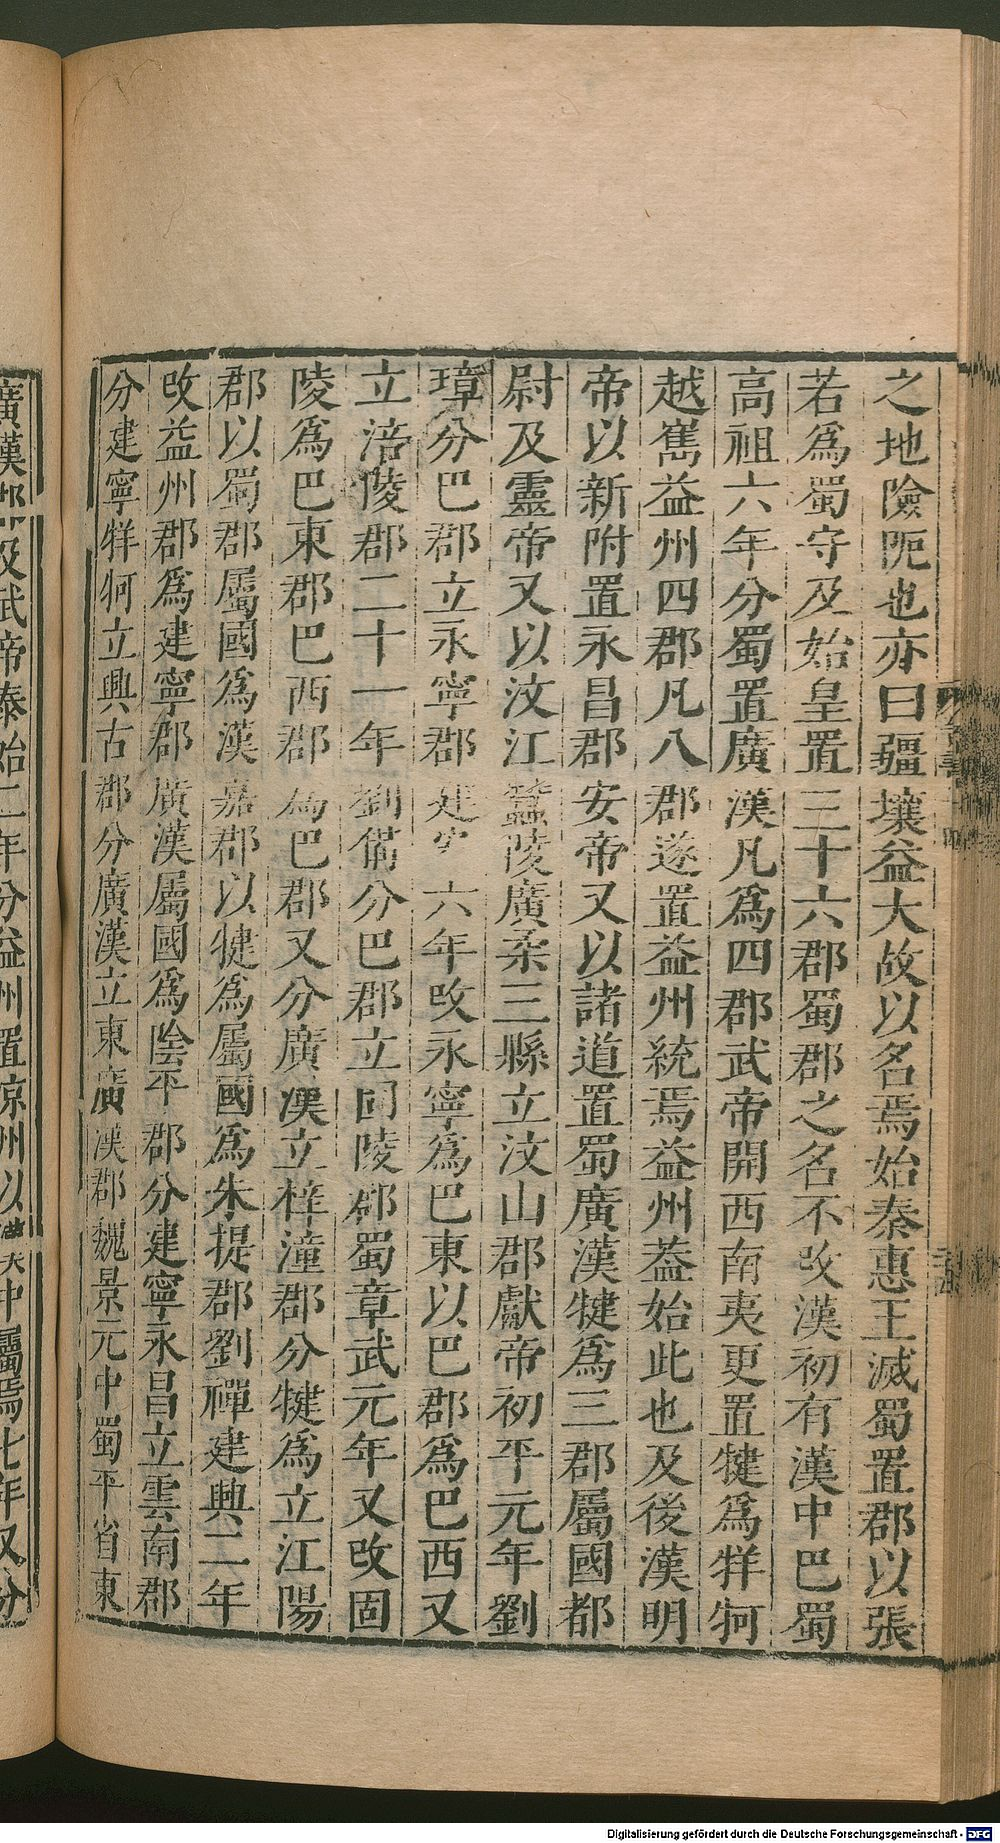 之地險阨也亦曰疆壤益大故以名焉始秦惠王滅蜀置郡以張
若爲蜀守及始皇置三十六郡蜀郡之名不改漢初有漢中巴蜀
高祖六年分蜀置廣漢凡爲四郡武帝開西南夷更置犍爲牂牁
越嶲益州四郡凡八郡遂置益州統焉益州蓋始此也及後漢明
帝以新附置永昌郡安帝又以諸道置蜀廣漢犍爲三郡屬國都
尉及靈帝又以汶江蠶陵廣柔三縣立汶山郡獻帝初平元年劉
璋分巴郡立永寧郡建安六年改永寧爲巴東以巴郡爲巴西又
立涪陵郡二十一年劉備分巴郡立固陵郡蜀章武元年又改固
陵爲巴東郡巴西郡爲巴郡又分廣漢立梓潼郡分犍爲立江陽
郡以蜀郡屬國爲漢嘉郡以犍爲屬國爲朱提郡劉禪建興二年
改益州郡爲建寧郡廣漢屬國爲陰平郡分建寧永昌立雲南郡
分建寧牂牁立興古郡分廣漢立東廣漢郡魏景元中蜀平省東
廣漢郡及武帝泰始二年分益州置凉州以漢中屬焉七年又分
Digitalisierung gefördert durch die Deutsche Forschungsgemeinschaft - DFG